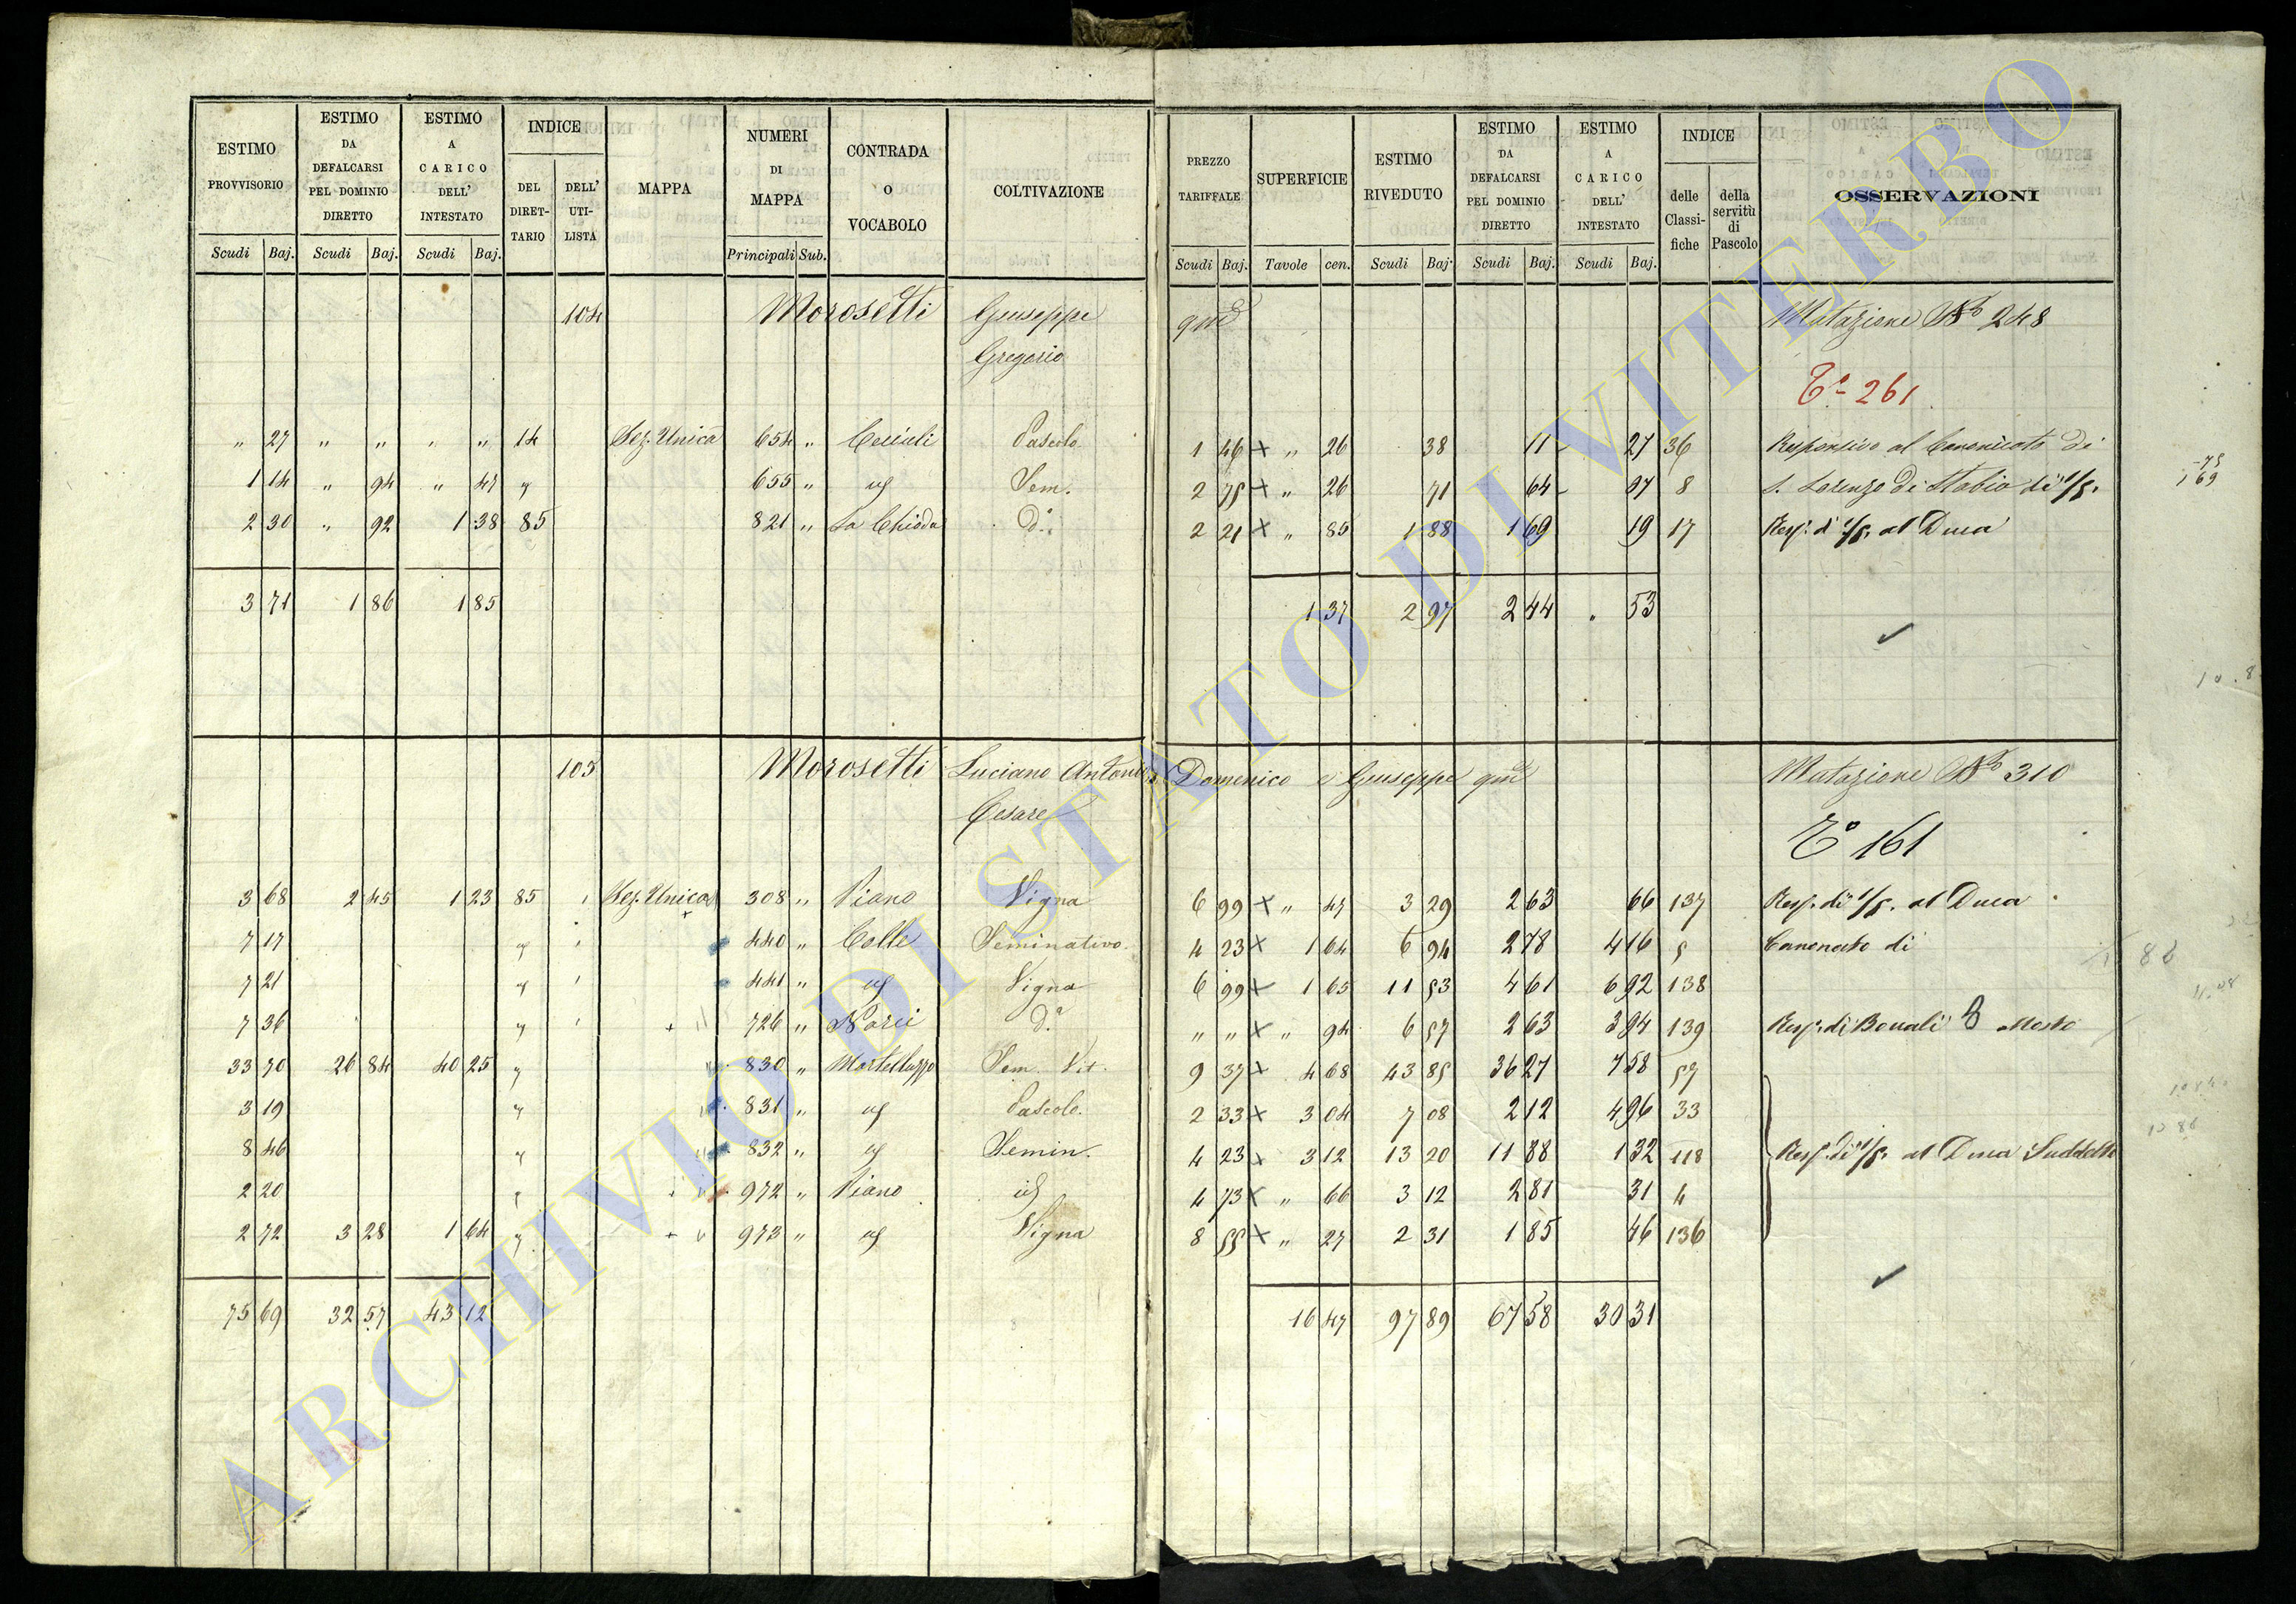 ESTIMO PROVVISORIO | ESTIMO DA DEFALCARSI PEL DOMINIO DIRETTO | ESTIMO A CARICO DELL' INTESTATO | INDICE | MAPPA | NUMERI DI MAPPA | CONTRADA O VOCABOLO | COLTIVAZIONE | PREZZO TARIFFALE | SUPERFICIE | ESTIMO RIVEDUTO | ESTIMO DA DEFALCARSI PEL DOMINIO DIRETTO | ESTIMO A CARICO DELL' INTESTATO | INDICE | OSSERVAZIONI
DEL DIRET-TARIO | DELL' UTI-LISTA | delle Classi-fiche | della servitù di Pascolo
Scudi Baj. | Scudi Baj. | Scudi Baj. | Principali Sub. | Scudi Baj. | Tavole cen. | Scudi Baj. | Scudi Baj. | Scudi Baj.
104 Morosetti Giuseppe qm Mutazione No 248
Gregorio
To 261
" 27 " " " " 14 Sez. Unica 654 " Pascolo 1 46 x " 26 38 11 27 36 Responsivo al Canonicato di
1 14 " 94 " 47 " 655 " id Sem. 2 75 x " 26 71 64 8 S. Lorenzo di Stabio di 1/5
2 30 " 92 1 38 85 821 " La Chioda do 2 21 x " 85 1 88 1 69 19 17 Resp. di 1/5 al Duca
3 71 1 86 1 85 1 37 2 97 2 44 " 53
105 Morosetti Luciano Antonio Domenico e Giuseppe qm Mutazione No 310
Cesare
To 161
3 68 2 45 1 23 85 Sez. Unica 308 " Piano Vigna 6 99 x " 47 3 29 2 63 66 137 Resp. di 1/5. al Duca
7 17 " 440 " Colle Seminativo. 4 23 x 1 64 6 94 2 78 4 16 5 Canonato di
7 21 " 441 " id Vigna 6 99 x 1 65 11 53 4 61 6 92 138
7 36 " 726 " Narii da " " x " 94 6 57 2 63 3 94 139 Resp. di
33 70 26 84 40 25 " 830 " Mortelluzzo Sem. Vit. 9 37 x 4 68 43 85 36 27 7 58 57
3 19 " 831 " id Pascolo. 2 33 x 3 04 7 08 2 12 4 96 33
8 46 " 832 " id Semin. 4 23 x 3 12 13 20 11 88 1 32 118 Resp. di 1/5. al Duca Suddetto
2 20 " 972 " Piano id 4 73 x " 66 3 12 2 81 31 4
2 72 3 28 1 64 " 973 " id Vigna 8 55 x " 27 2 31 1 85 46 136
75 69 32 57 43 12 16 47 97 89 67 58 30 31
ARCHIVIO DI STATO DI VITERBO